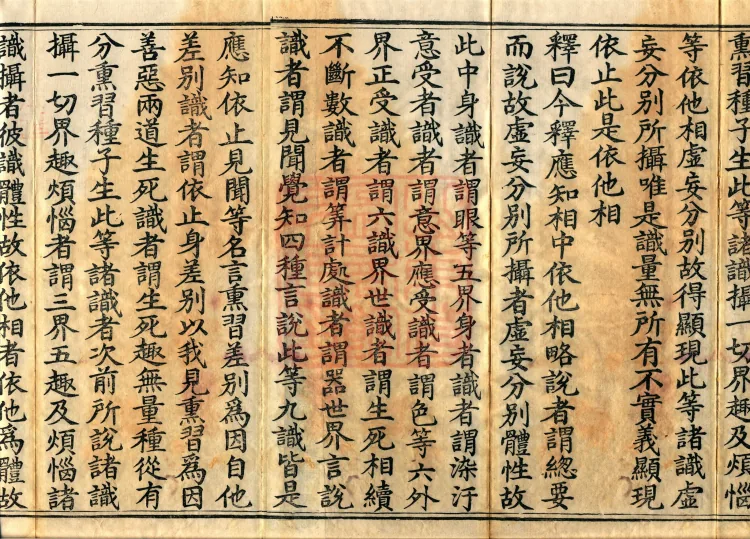 熏習種子生此等諸識攝一切界趣及煩惱
等依他相虛妄分別故得顯現此等諸識虛
妄分別所攝唯是識量無所有不實義顯現
依止此是依他相
釋曰今釋應知相中依他相略說者謂總要
而說故虛妄分別所攝者虛妄分別體性故
此中身識者謂眼等五界身者識者謂染汙
意受者識者謂意界應受識者謂色等六外
界正受識者謂六識界世識者謂生死相續
不斷數識者謂筭計處識者謂器世界言說
識者謂見聞覺知四種言說此等九識皆是
應知依止見聞等名言熏習差別為因自他
差別識者謂依止身差別以我見熏習為因
善惡兩道生死識者謂生死趣無量種從有
分熏習種子生此等諸識者次前所說諸識
攝一切界趣煩惱者謂三界五趣及煩惱諸
識攝者彼識體性故依他相者依他為體故